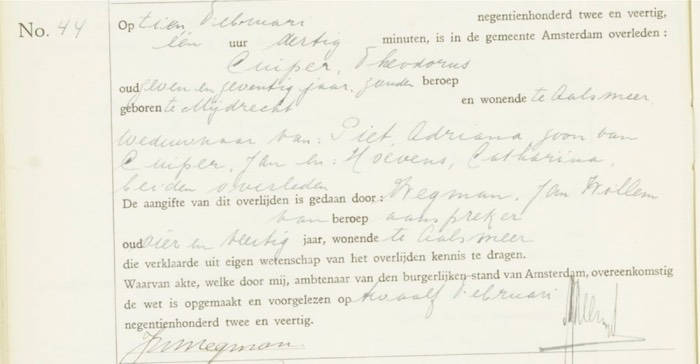 No. 44
Op tien Februari negentienhonderd twee en veertig,
één uur dertig minuten, is in de gemeente Amsterdam overleden :
Cuiper, Theodorus
oud zeven en zeventig jaar, zonder beroep
geboren te Mijdrecht en wonende te Aalsmeer,
weduwnaar van: Piet, Adriana, zoon van
Cuiper, Jan en: Hoevens, Catharina,
beiden overleden
De aangifte van dit overlijden is gedaan door : Wegman, Jan Willem
van beroep aanspreker
oud vier en veertig jaar, wonende te Aalsmeer
die verklaarde uit eigen wetenschap van het overlijden kennis te dragen.
Waarvan akte, welke door mij, ambtenaar van den burgerlijken-stand van Amsterdam, overeenkomstig
de wet is opgemaakt en voorgelezen op twaalf Februari
negentienhonderd twee en veertig.
JWWegman